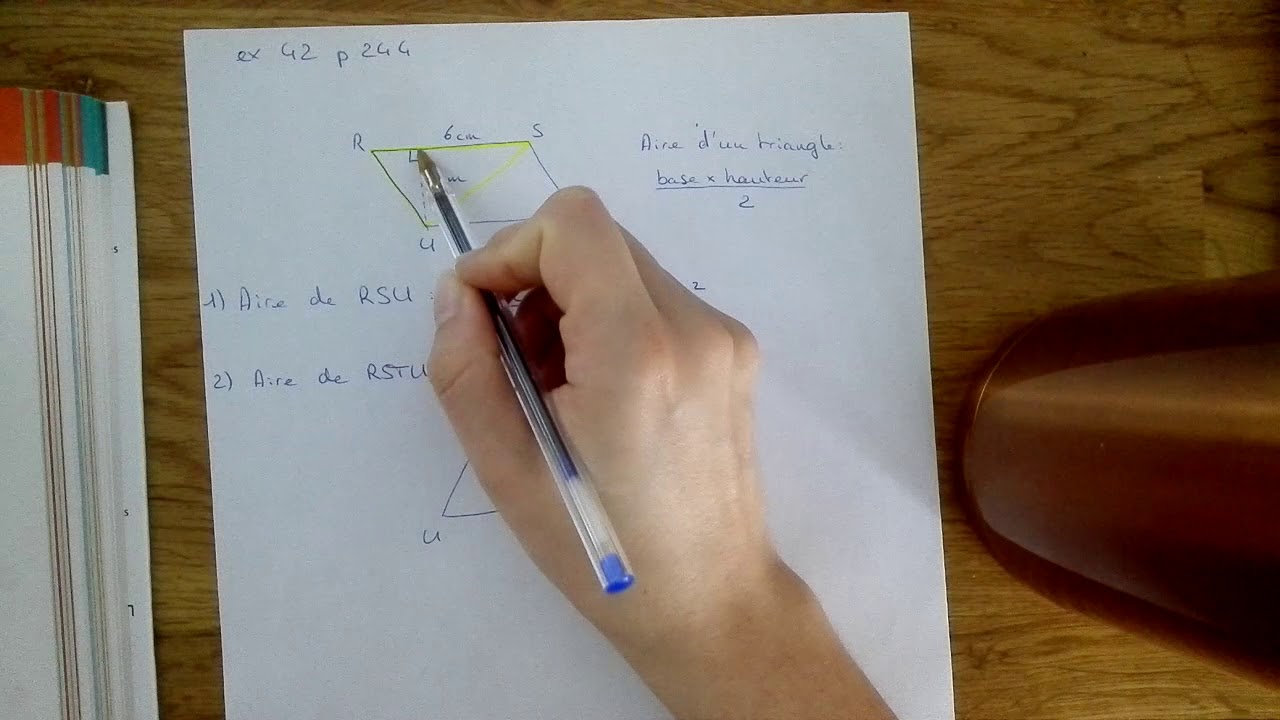 ex 42 p 244
R 6 cm S
m
U
Aire d'un triangle:
base × hauteur
2
1) Aire de RSU :
2
2) Aire de RSTU
U